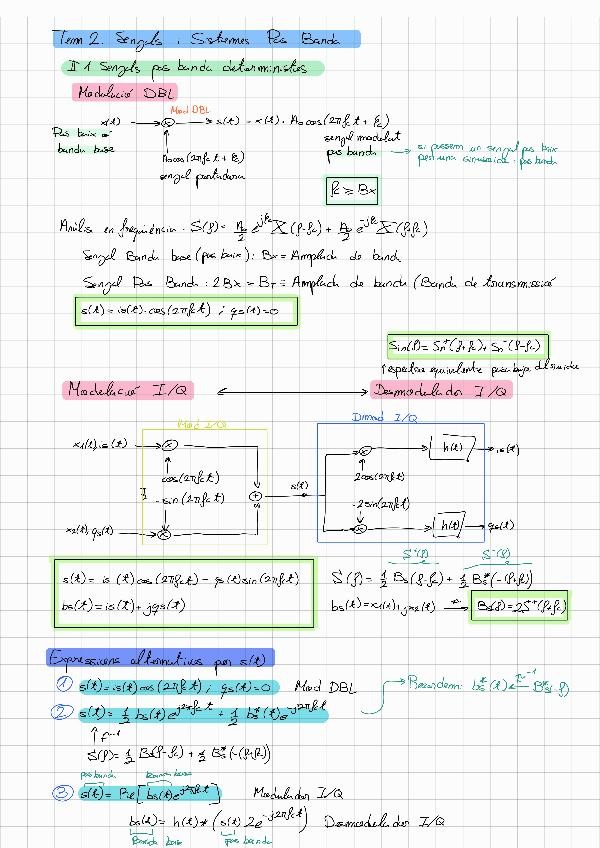 Tema 2. Senyals i Sistemes Pas Banda
II 1 Senyals pas banda deterministes
Modulació DBL
Mod DBL
x(t) → ⊗ → s(t) = x(t) · A₀cos(2πfct + φc)
senyal modulat
pas banda
Pas baix o
banda base
A₀cos(2πfct + φc)
senyal portadora
si passem un senyal pas baix
per una sinusoide · pas banda
fc ≥ Bx
Anàlisi en freqüència · S(f) = A₀/2 e^jφc X(f-fc) + A₀/2 e^-jφc X(f+fc)
Senyal Banda base (pas baix) : Bx = Amplada de band
Senyal Pas Banda : 2Bx = BT = Amplada de banda (Banda de transmissió
s(t) = is(t)·cos(2πfct) ; qs(t)=0
Sin(f) = Sn⁺(f+fc) + Sn⁻(f-fc)
Modulació I/Q ⟷ Desmodulador I/Q
Mod I/Q
Dimod I/Q
x1(t) is(t)
cos(2πfct)
-sin(2πfct)
x2(t) qs(t)
s(t)
2cos(2πfct)
-2sin(2πfct)
h(t)
is(t)
h(t)
qs(t)
s(t) = is(t)cos(2πfct) - qs(t)sin(2πfct)
bs(t) = is(t) + jqs(t)
S⁺(f) S⁻(f)
S(f) = 1/2 Bs(f-fc) + 1/2 Bs*(-(f+fc))
bs(t) = x1(t) + jx2(t) → Bs(f) = 2S⁺(f+fc)
Expressions alternatives per s(t)
① s(t) = is(t)cos(2πfct) ; qs(t)=0 Mod DBL
Recordem: bs*(t) ←F⁻¹ Bs*(-f)
② s(t) = 1/2 bs(t)e^j2πfct + 1/2 bs*(t)e^-j2πfct
↑ F⁻¹
S(f) = 1/2 Bs(f-fc) + 1/2 Bs*(-(f+fc))
pas banda banda base
③ s(t) = Re[bs(t)e^j2πfct] Modulador I/Q
bs(t) = h(t) * (s(t) 2e^-j2πfct) Desmodulador I/Q
Banda base pas banda